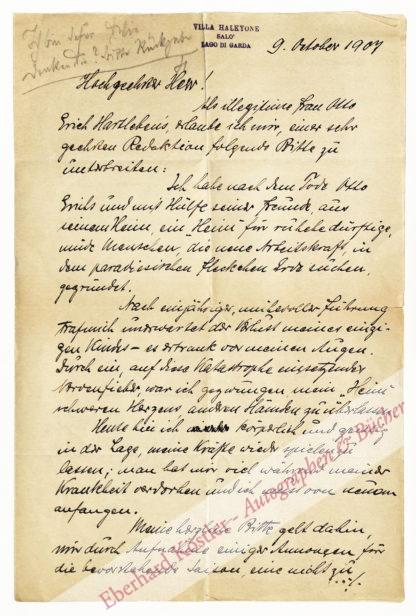 VILLA HALKYONE
SALO'
LAGO DI GARDA
9. October 1907
Ich bin dafür.
Bitte Rückgabe
Hochgeehrter Herr!
Als illegitime Frau Otto
Erich Hartlebens, erlaube ich mir, einer sehr
geehrten Redaktion folgende Bitte zu
unterbreiten:
Ich habe nach dem Tode Otto
Erichs und mit Hülfe seiner Freunde, aus
seinem Heim, ein Heim für ruhebedürftige,
müde Menschen, die neue Arbeitskraft, in
dem paradiesischen Fleckchen Erde suchen,
gegründet.
Nach einjähriger, mühevoller Führung
traf mich unerwartet der Verlust meines einzi-
gen Kindes – es ertrank vor meinen Augen.
Durch ein, auf diese Katastrophe einsetzendes
Nervenfieber, war ich gezwungen mein "Heim"
schweren Herzens, anderen Händen zu überlassen.
Heute bin ich körperlich und geistig
in der Lage, meine Kräfte wieder spielen zu
lassen; man hat mir viel während meiner
Krankheit verdorben und ich muss von neuem
anfangen.
Meine herzliche Bitte geht dahin,
mir durch Aufnahme einiger Annongen für
die bevorstehende Saison, eine nicht zu
./.
Eberhard Köstler - Autographen & Bücher